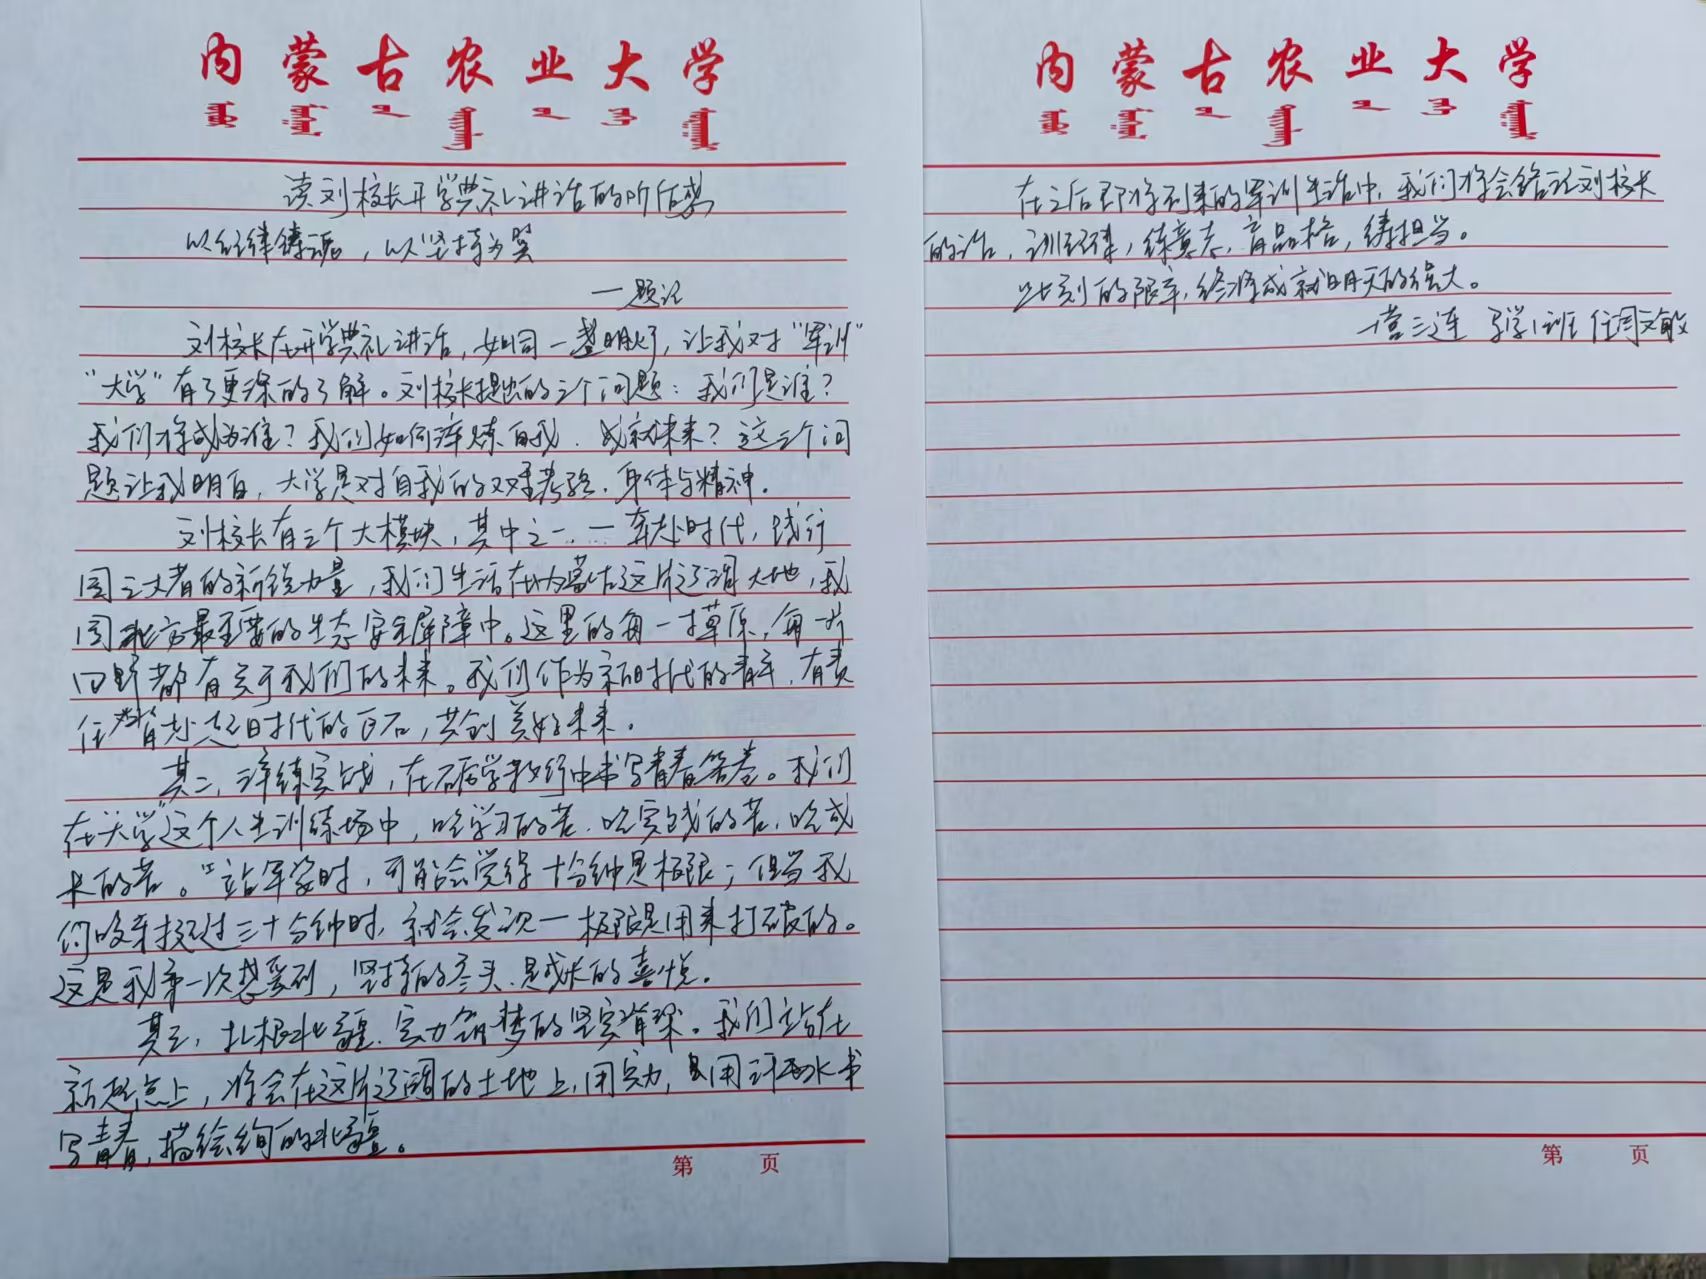 内蒙古农业大学
读刘校长开学典礼讲话的所任感
以纪律铸魂，以坚持为翼
—题记
刘校长在开学典礼讲话，如同一盏明灯，让我对“军训”
“大学”有了更深的了解。刘校长提出的三个问题：我们是谁？
我们将成为谁？我们如何淬炼自我、成就未来？这三个问
题让我明白，大学是对自我的双重考验，身体与精神。
刘校长有三个大模块，其中之一……奔赴时代，践行
的新锐力量，我们生活在内蒙古这片辽阔大地，我
国北方最重要的生态安全屏障中。这里的每一寸草原，每一片
田野都有关于我们的未来。我们作为新时代的青年，有责
任背起时代的石，共创美好未来。
其二，淬练实战，在中书写青春答卷。我们
在“大学”这个人生训练场中，吃学习的苦、吃实践的苦、吃成
长的苦。“站军姿时，可能会觉得十分钟是极限；但当我
们咬牙挺过三十分钟时，就会发现—极限是用来打破的。
这是我第一次感受到，坚持的尽头是成长的喜悦。
其三，扎根北疆，实力筑梦的坚实脊梁。我们站在
新起点上，将会在这片辽阔的土地上，用实力，用汗水书
写青春，描绘绚的北疆。
第 页
内蒙古农业大学
在之后即将到来的军训生活中，我们将会铭记刘校长
的话，训纪律，练意志，育品格，铸担当。
此刻的艰辛，终将成就明天的强大。
一营三连 班 任周文敏
第 页